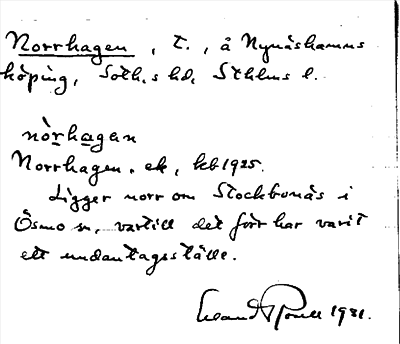 Norrhagen, t., å Nynäshamns
köping, Soth.s hd, Sthlms l.
nòrhagan
Norrhagen. ek, kb 1925.
Ligger norr om Stockbonäs i
Ösmo sn, vartill det förr har varit
ett undantagsställe.
1931.